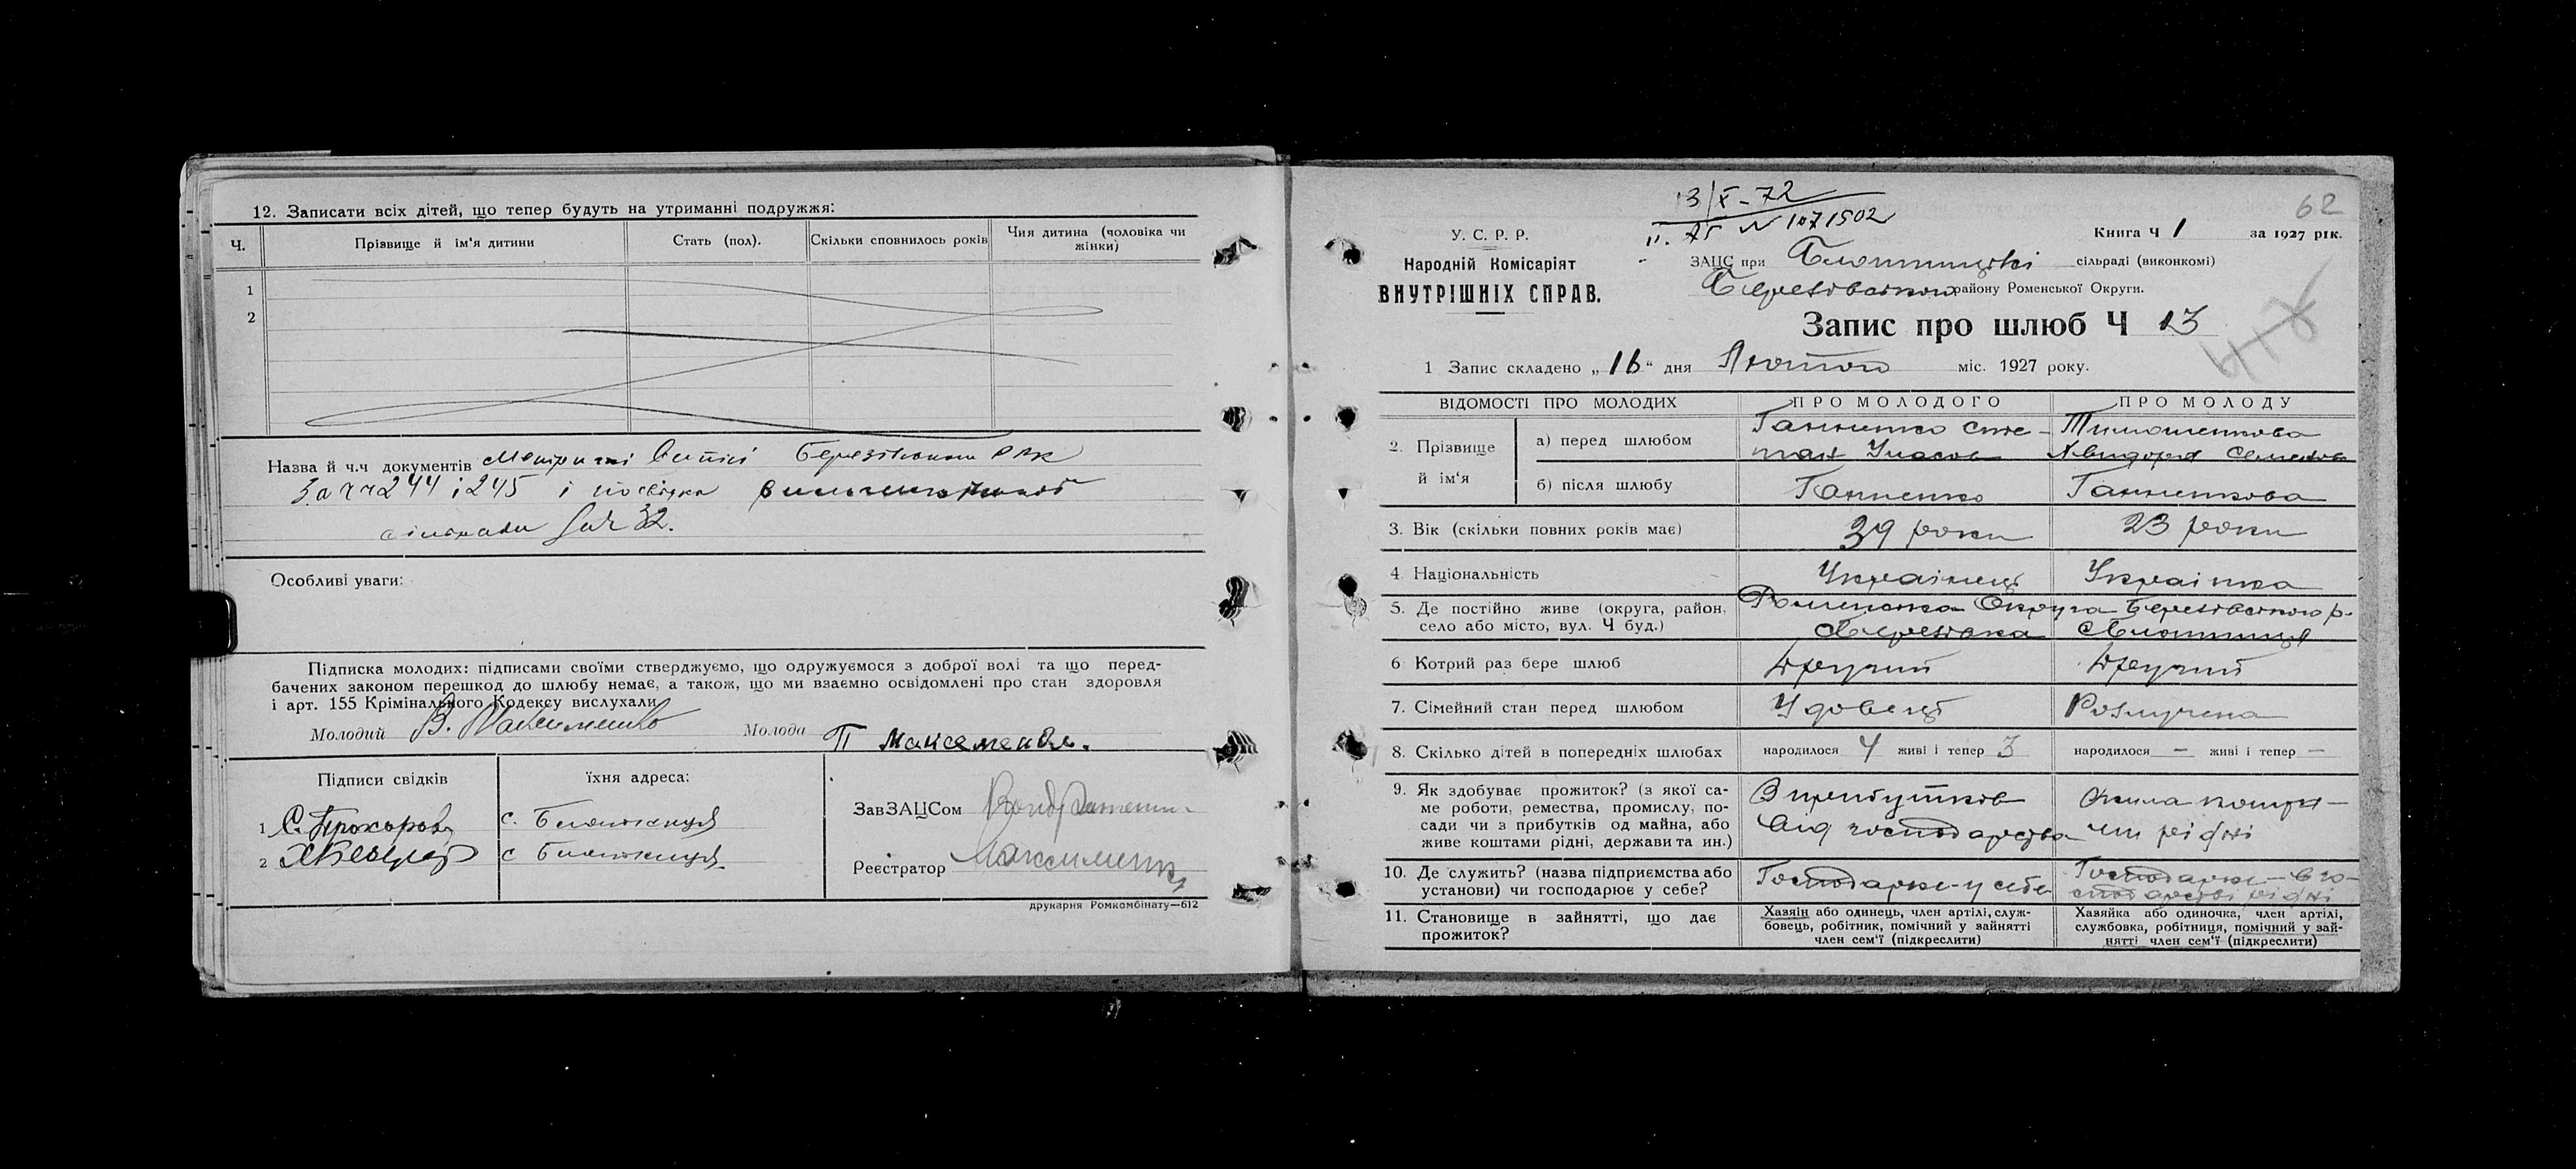 12. Записати всіх дітей, що тепер будуть на утриманні подружжя:
Ч.
Прізвище й ім'я дитини
Стать (пол).
Скільки сповнилось років
Чия дитина (чоловіка чи жінки)
1
2
Назва й ч.ч документів Березівського РВК
За чч 244 і 245 і посвідка
сільради за ч 32.
Особливі уваги:
Підписка молодих: підписами своїми стверджуємо, що одружуємося з доброї волі та що перед-
бачених законом перешкод до шлюбу немає, а також, що ми взаємно освідомлені про стан здоровля
і арт. 155 Крімінального Кодексу вислухали
Молодий В. Максименко Молода П
Підписи свідків
їхня адреса:
1 С. Прохоров с. Билотниця
2 с Билотниця
ЗавЗАЦСом
Реєстратор Максименко
друкарня Ромкомбінату—612
62
13/X-72
II. АГ N 1071502
У. С. Р. Р.
Народній Комісаріят
ВНУТРІШНІХ СПРАВ.
Книга Ч 1 за 1927 рік.
ЗАЦС при сільраді (виконкомі)
Березівського району Роменської Округи.
Запис про шлюб Ч 13
1 Запис складено „16" дня Лютого міс. 1927 року.
ВІДОМОСТІ ПРО МОЛОДИХ
ПРО МОЛОДОГО
ПРО МОЛОДУ
2. Прізвище й ім'я
а) перед шлюбом
Ганненко Сте-
пан
Тимошенкова
б) після шлюбу
Ганненко
Ганненкова
3. Вік (скільки повних років має)
39 роки
23 роки
4. Національність
Українець
Українка
5. Де постійно живе (округа, район,
село або місто, вул. Ч буд.)
Роменська Округа Березівського р.
с Березівка
с Билотниця
6 Котрий раз бере шлюб
Другий
Другий
7. Сімейний стан перед шлюбом
Удовець
Розлучена
8. Скілько дітей в попередніх шлюбах
народилося 4 живі і тепер 3
народилося — живі і тепер —
9. Як здобуває прожиток? (з якої са-
ме роботи, ремества, промислу, по-
сади чи з прибутків од майна, або
живе коштами рідні, держави та ин.)
З прибутків
від господарства
жила кошта-
ми рідні
10. Де служить? (назва підприємства або
установи) чи господарює у себе?
Господарює у себе
Господарює в го-
сподарстві рідні
11. Становище в зайнятті, що дає
прожиток?
Хазяїн або одинець, член артілі, служ-
бовець, робітник, помічний у зайнятті
член сем'ї (підкреслити)
Хазяйка або одиночка, член артілі,
службовка, робітниця, помічний у зай-
нятті член сем'ї (підкреслити)